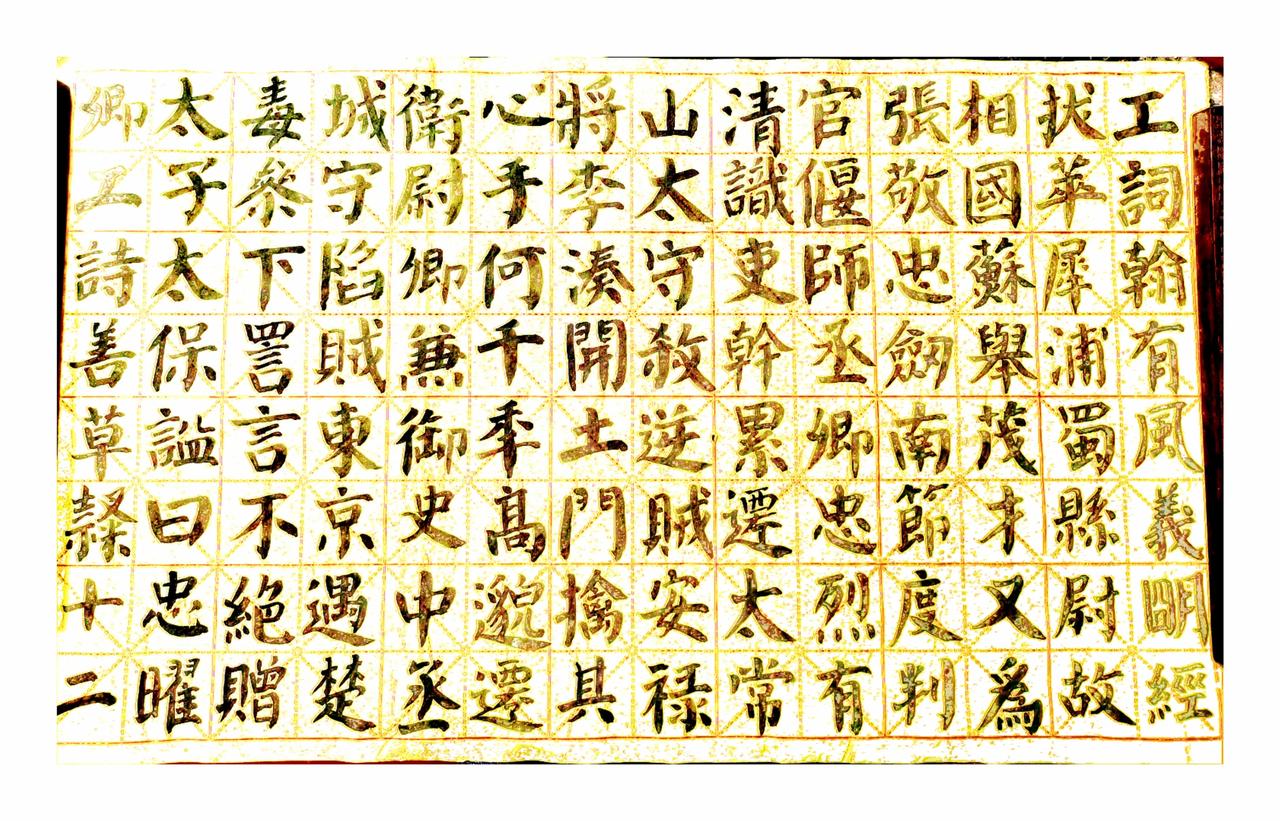 工詞翰有風義朙經
拔萃犀浦蜀縣尉故
相國蘇舉茂才又爲
張敬忠劒南節度判
官偃師丞卿忠烈有
清識吏幹累遷太常
山太守殺逆賊安禄
將李湊開土門擒其
心手何千秊髙邈遷
衛尉卿兼御史中丞
城守陷賊東京遇楚
毒參下詈言不絶贈
太子太保謚曰忠曜
卿工詩善草隸十二